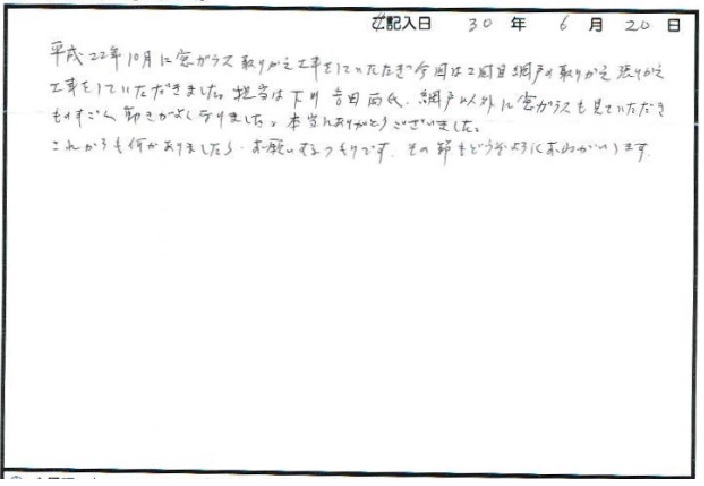 ご記入日 30年 6月 20日
平成22年10月に窓ガラス取りかえ工事をしていただき今回は2回目網戸の取りかえ張りかえ
工事をしていただきました。担当は下川 吉田両氏、網戸以外に窓ガラスも見ていただき
ものすごく動きがよくなりました。本当にありがとうございました。
これからも何かありましたら、お願いするつもりです。その節もどうぞよろしくおねがいします。